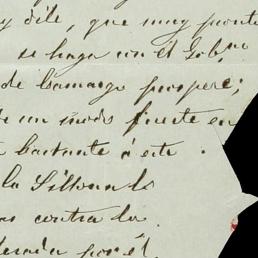 y díle, que muy pronto
se haga con él Gobno
de Camargo prospere;
de un modo fuerte en
bastante á este
la
contra la
por él